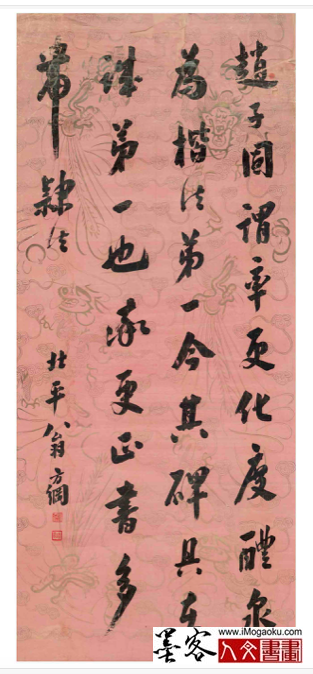 趙子固謂率更化度醴泉
為楷法第一今其碑具在
誠第一也率更正書多
帶隸法
北平翁方綱
www.iMogaoku.com
墨客人文書畫